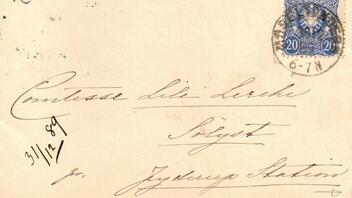 20 20
6-7N
Comtesse Lili Lerche
Sölyst
pr. Jyderup Station
31/12 89